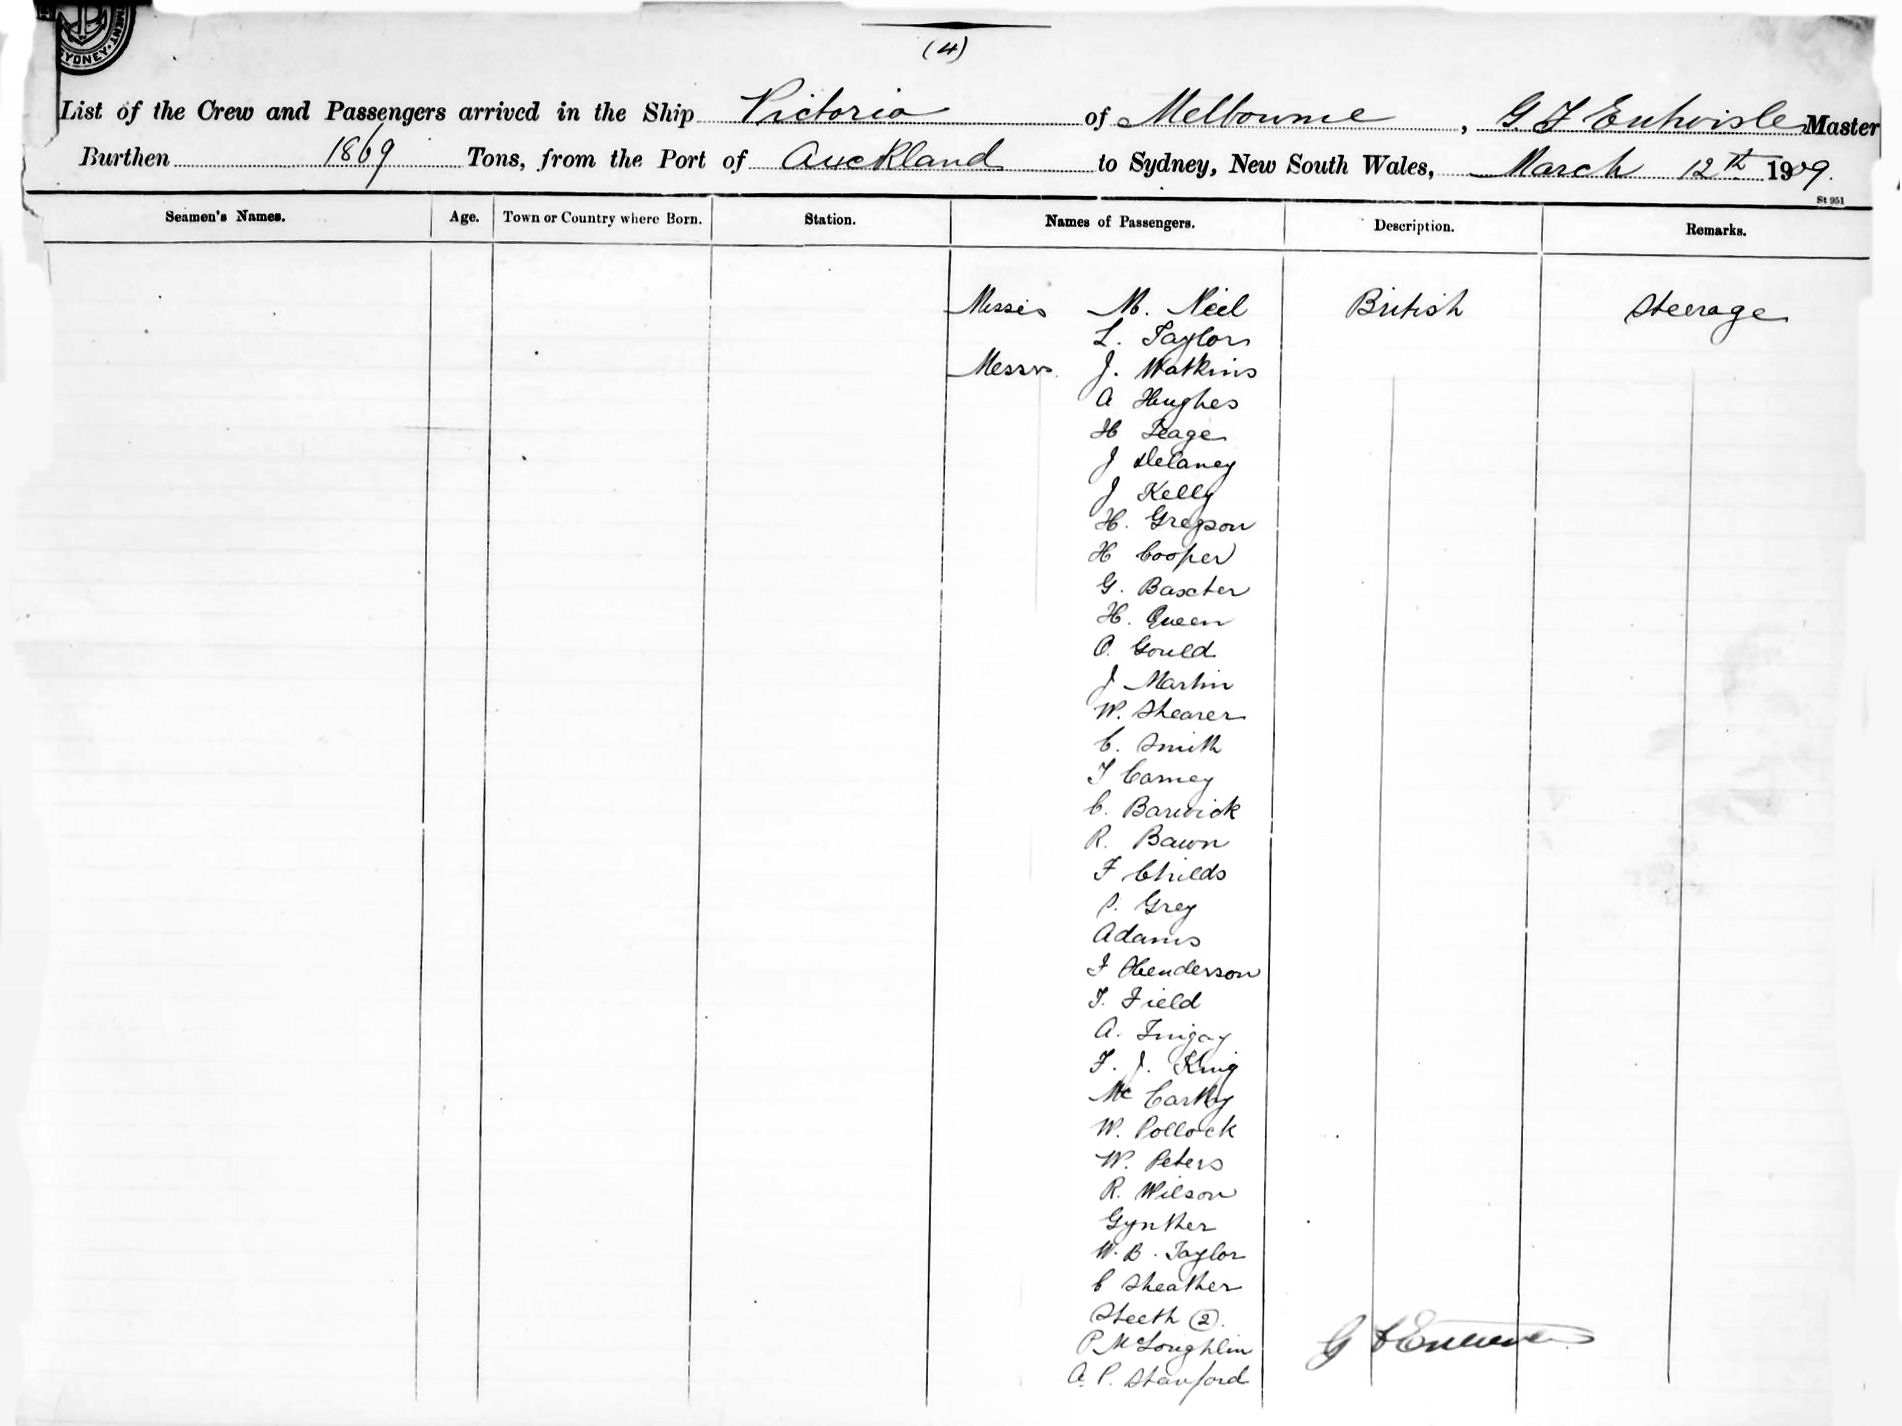 (4)
List of the Crew and Passengers arrived in the Ship Victoria of Melbourne, G. F Entwisle Master
Burthen 1869 Tons, from the Port of Auckland to Sydney, New South Wales, March 12th 1909.
St 951
Seamen's Names. Age. Town or Country where Born. Station. Names of Passengers. Description. Remarks.
Misses M. Neil British Steerage
L. Taylor
Messrs. J. Watkins
A Hughes
H Teage
J Delaney
J Kelly
H. Gregson
H Cooper
G. Baxter
H. Queen
O. Gould
J Martin
W. Shearer
C. Smith
T Carney
C. Barwick
R. Bawn
F Childs
P. Grey
Adams
F Henderson
T. Field
A.
F. J. King
McCarthy
W. Pollock
W. Peters
R. Wilson
Gynther
W. B. Taylor
C Sheather
Steeth (2).
P McLoughlin
A. P. Stanford
SYDNEY